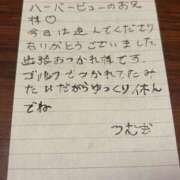 ハーバービューのお兄
様♡
今日は遊んでくださり
ありがとうございました
出張おつかれ様です。
ゴルフでつかれてたみ
たいだからゆっくり休ん
でね
つむぎ